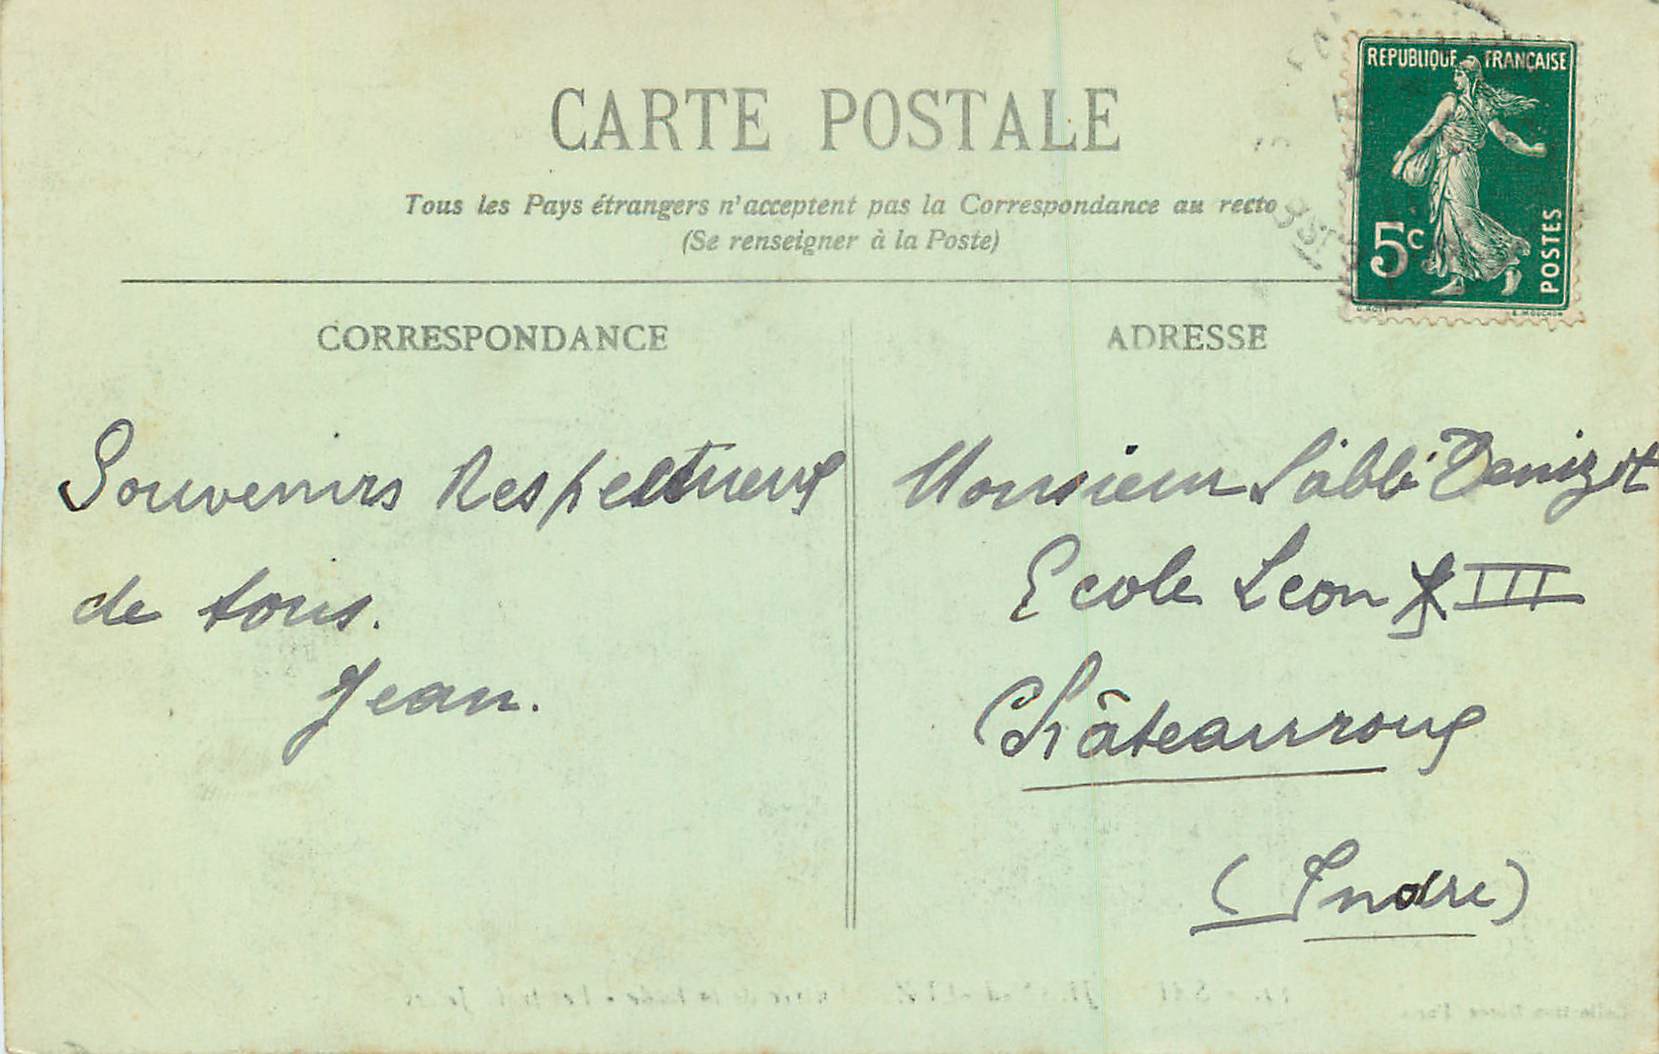 CARTE POSTALE
Tous les Pays étrangers n'acceptent pas la Correspondance au recto
(Se renseigner à la Poste)
REPUBLIQUE FRANÇAISE
5c
POSTES
E. MOUCHON
CORRESPONDANCE
Souvenirs Respectueux
de tous.
Jean.
ADRESSE
Monsieur L'abbé Denizot
Ecole Leon XIII
Châteauroux
(Indre)